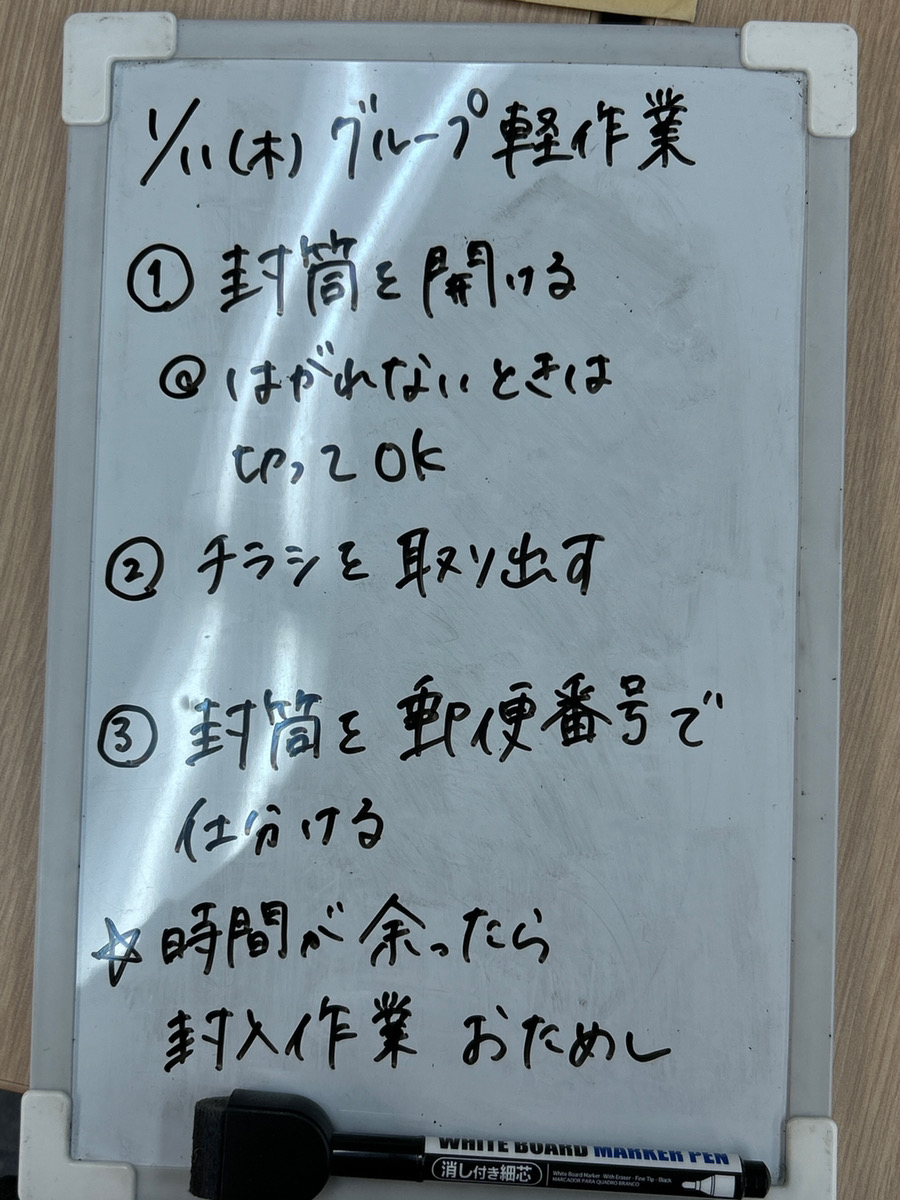 1/11(木) グループ軽作業
① 封筒を開ける
@ はがれないときは
切ってOK
② チラシを取り出す
③ 封筒を郵便番号で
仕分ける
☆ 時間が余ったら
封入作業 おためし
WHITE BOARD MARKER PEN
消し付き細芯
White Board Marker・With Eraser・Fine Tip・Black
MARCADOR PARA QUADRO BRANCO